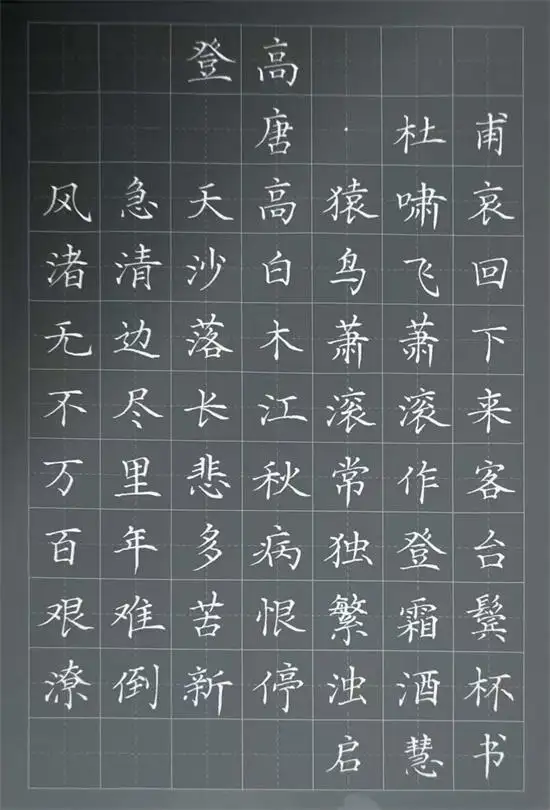 登高
唐·杜甫
风急天高猿啸哀
渚清沙白鸟飞回
无边落木萧萧下
不尽长江滚滚来
万里悲秋常作客
百年多病独登台
艰难苦恨繁霜鬓
潦倒新停浊酒杯
启慧书